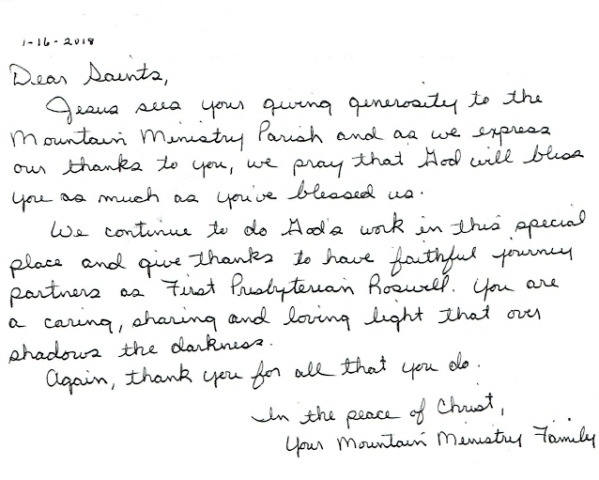 1-16-2018
Dear Saints,
Jesus sees your giving generosity to the
Mountain Ministry Parish and as we express
our thanks to you, we pray that God will bless
you as much as you've blessed us.
We continue to do God's work in this special
place and give thanks to have faithful journey
partners as First Presbyterian Roswell. You are
a caring, sharing and loving light that over
shadows the darkness.
Again, thank you for all that you do.
In the peace of Christ,
Your Mountain Ministry Family